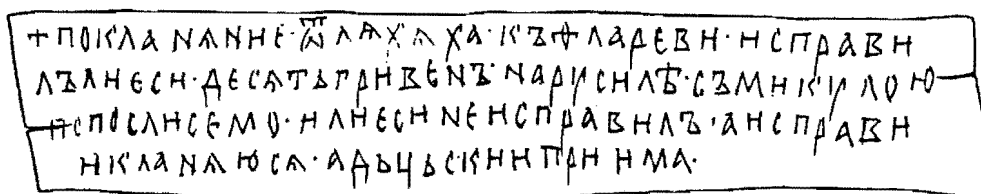 +ПОКЛАНѦНИЕ·ѾЛѦХѦХА·КЪФЛАРЕВИ·ИСПРАВИ
ЛЪЛИЕСИ·ДЕСѦТЬГРИВЕНЪ·НАРУСИЛѢ·СЪМИКУЛОЮ
ПСПОСЛИСЕМО·ИЛИЕСИНЕИСПРАВИЛЪ·АИСПРАВИ
ИКЛАНѦЮСѦ·АДЬЦЬСКИИПРИИМА·